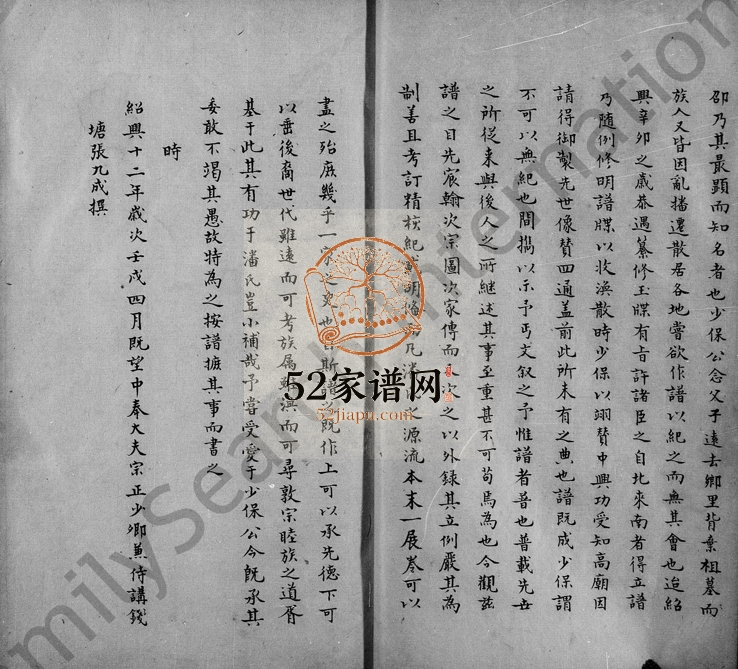 邵乃其最顯而知名者也少保公念父子遠去鄉里背棄祖墓而
族人又皆因亂播遷散居各地嘗欲作譜以紀之而無其會也迨紹
興辛卯之歲恭遇纂修玉牒有旨許諸臣之自北來南者得立譜
乃随例修明譜牒以收渙散時少保以翊贊中興功受知高廟因
請得御製先世像贊四通盖前此所未有之典也譜既成少保謂
不可以無紀也間携以示予丐文叙之予惟譜者普也普載先世
之所從来與後人之所繼述其事至重甚不可苟焉為也今觀兹
譜之目先宸翰次宗圖次家傳而次之以外録其立例嚴其為
制善且考訂精核紀明源流本末一展卷可以
盡之殆庶幾乎一家之史也斯譜之既作上可以承先德下可
以垂後裔世代雖遠而可考族属雖滨而可尋敦宗睦族之道胥
基于此其有功于潘氏豈小補哉予嘗受愛于少保公今既承其
委敢不竭其愚故特為之按譜摭其事而書之
時
紹興十二年歲次壬戌四月既望中奉大夫宗正少卿兼侍講錢
塘張九成撰
52家谱网
52jiapu.com
milySearch International
milySearch International